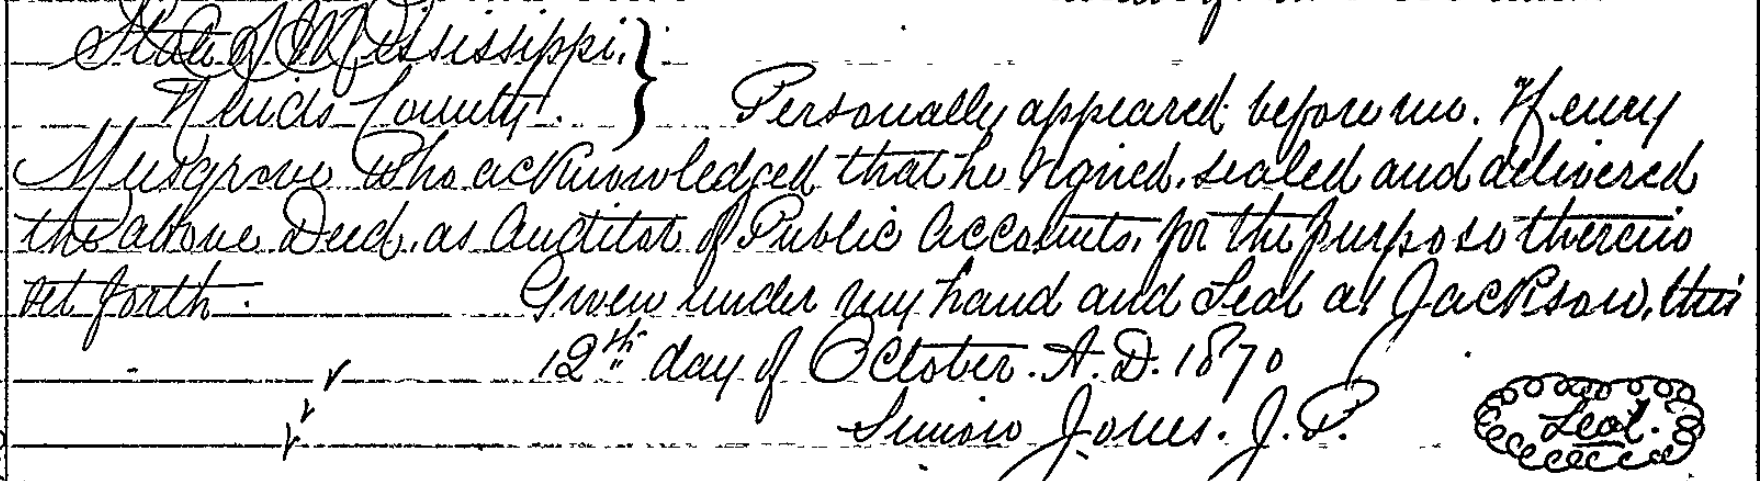 State of Mississippi. }
Hinds County. } Personally appeared before me. Henry
Musgrove who acknowledged that he signed, sealed and delivered
the above Deed, as Auditor of Public Accounts, for the purpose therein
set forth. Given under my hand and Seal at Jackson, this
12th day of October. A.D. 1870
Simon Jones. J.P. Seal.